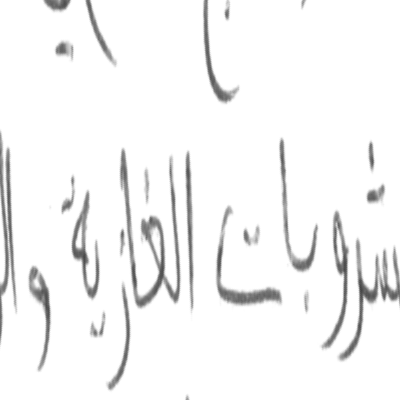 شروبات الغازية وال